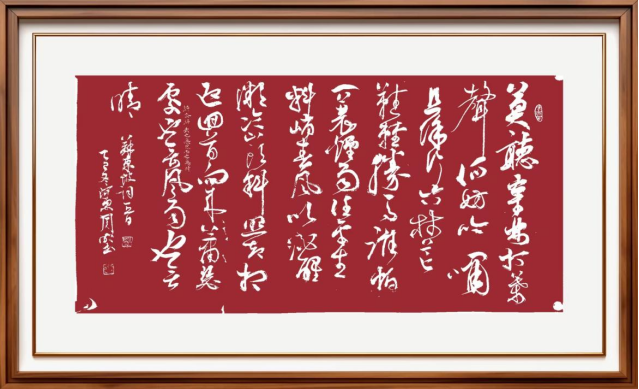 莫聽穿林打葉
聲何妨吟嘯
且徐行竹杖芒
鞋輕勝馬誰怕
一蓑煙雨任平生
料峭春風吹酒醒
微冷山頭斜照却相
迎回首向來蕭瑟
處也無風雨也無
晴
蘇東坡詞一首